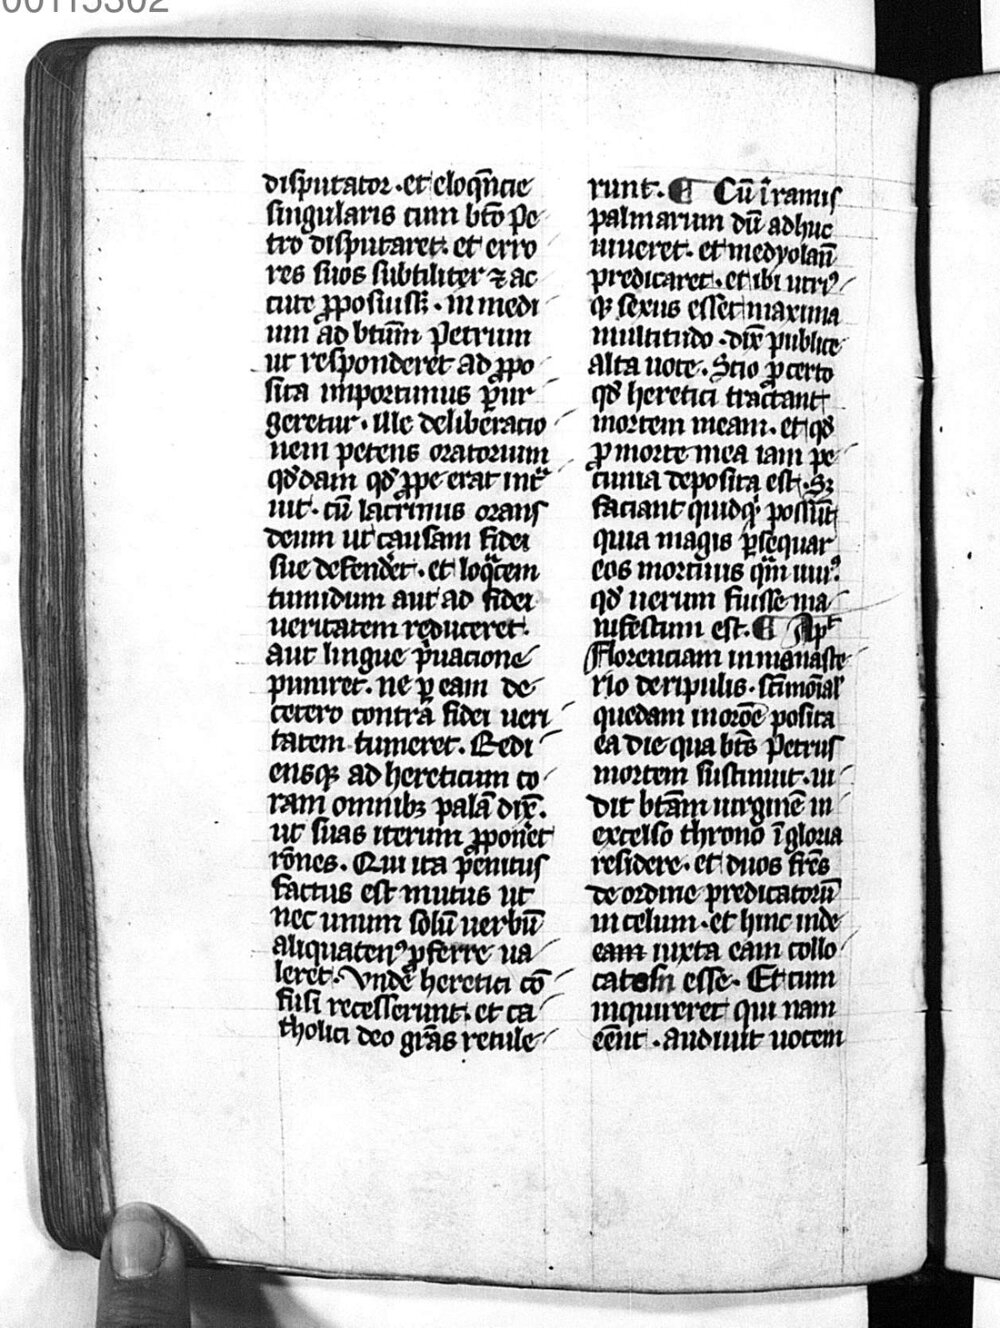 00115302
disputator · et eloqn̄cie
singularis cum bt̄o Pe
tro disputaret · et erro
res suos subtiliter ⁊ ac
cute ꝓposuiss; · in medi
um ad bt̄um Petrum
ut responderet ad ꝓpo
sita importunus ꝑur
geretur · Ille deliberacio
nem petens oratorium
qd̄dam qd̄ ꝓpe erat int̾
uit · cū lacrimis orans
deum ut causam fidei
sue defender̄et · et loqͣcem
tumidum aut ad fidei
ueritatem reduceret ·
aut lingue p̄uacione
puniret · ne ꝑ eam de
cetero contra fidei ueri
tatem tumeret · Redi
ensqꝫ ad hereticum co
ram omnibꝫ palā dix̄ ·
ut suas iterum ꝓponeret
rōnes · Qui ita penitus
factus est mutus ut
nec unum solū uerbū
aliquatenꝰ ꝓferre ua
leret · Vnde heretici cō
fusi recesserunt · et ca
tholici deo grās retule
runt · ¶ Cū ī ramis
palmarum dū adhuc
uiueret · et medyolan̄
predicaret · et ibi utriꝰ
qꝫ sexus esset maxima
multitudo · dix̄ publice
alta uoce · Scio ꝓ certo
qd̄ heretici tractant
mortem meam · et qd̄
ꝓ morte mea iam pe
cunia deposita est · Sꝫ
faciant quidqͥd possūt
quia magis ꝑsequar
eos mortuus qͣm uiuꝰ ·
qd̄ uerum fuisse ma
nifestum est · ¶ Apͭ
Florenciam in monaste
rio de ripulis · sc̄imōial̄
quedam in orōe posita
ea die qua bt̄s Petrus
mortem sustinuit · ui
dit bt̄am uirginē in
excelso throno ī gloria
residere · et duos fr̄es
de ordine predicatorū
in celum · et hinc inde
eam iuxta eam collo
catos esse · Et cum
inquireret qui nam
eēnt · audiuit uocem